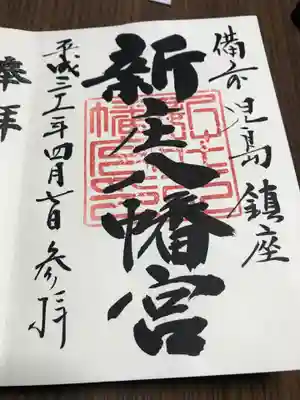 備前児島鎮座
新庄八幡宮
平成三十一年四月七日参拝
奉拝